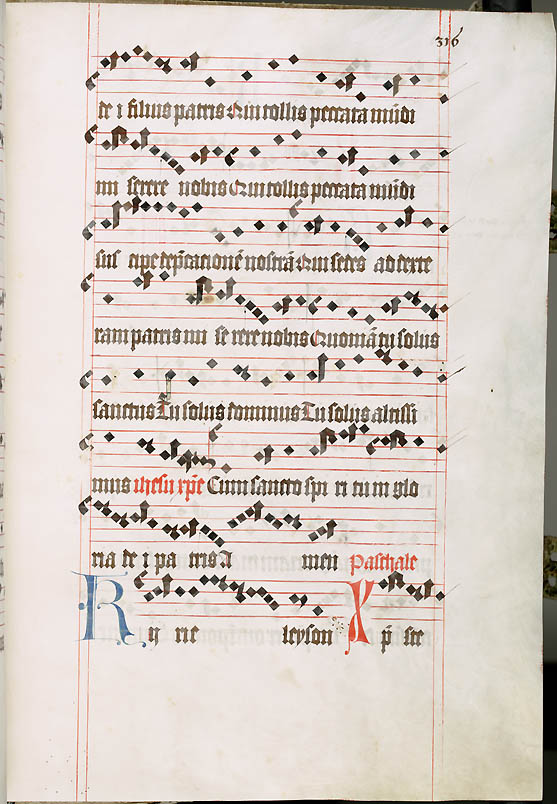 316
de i filius patris Qui tollis peccata mūdi
mi serere nobis Qui tollis peccata mūdi
sus cipe dep̄cacionē nostrā Qui sedes ad dexte
ram patris mi se rere nobis Quoniā tu solus
sanctus Tu solus dominus Tu solus altissi
mus ihesu xp̄e Cum sancto spi ri tu in glo
ria de i pa tris A men Paschale
K y rie leyson X p̄ ste